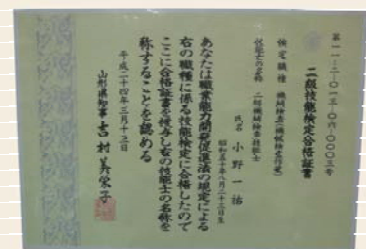 二級技能検定合格証書
第一一-二-〇一五-〇六-〇〇〇三号
検定職種 機械検査(機械検査作業)
技能士の名称 二級機械検査技能士
氏名 小野一祐
昭和五十年八月二十三日生
あなたは職業能力開発促進法の規定による
右の職種に係る技能検定に合格したので
ここに合格証書を授与し右の技能士の名称を
称することを認める
平成二十四年三月十三日
山形県知事 吉村美栄子